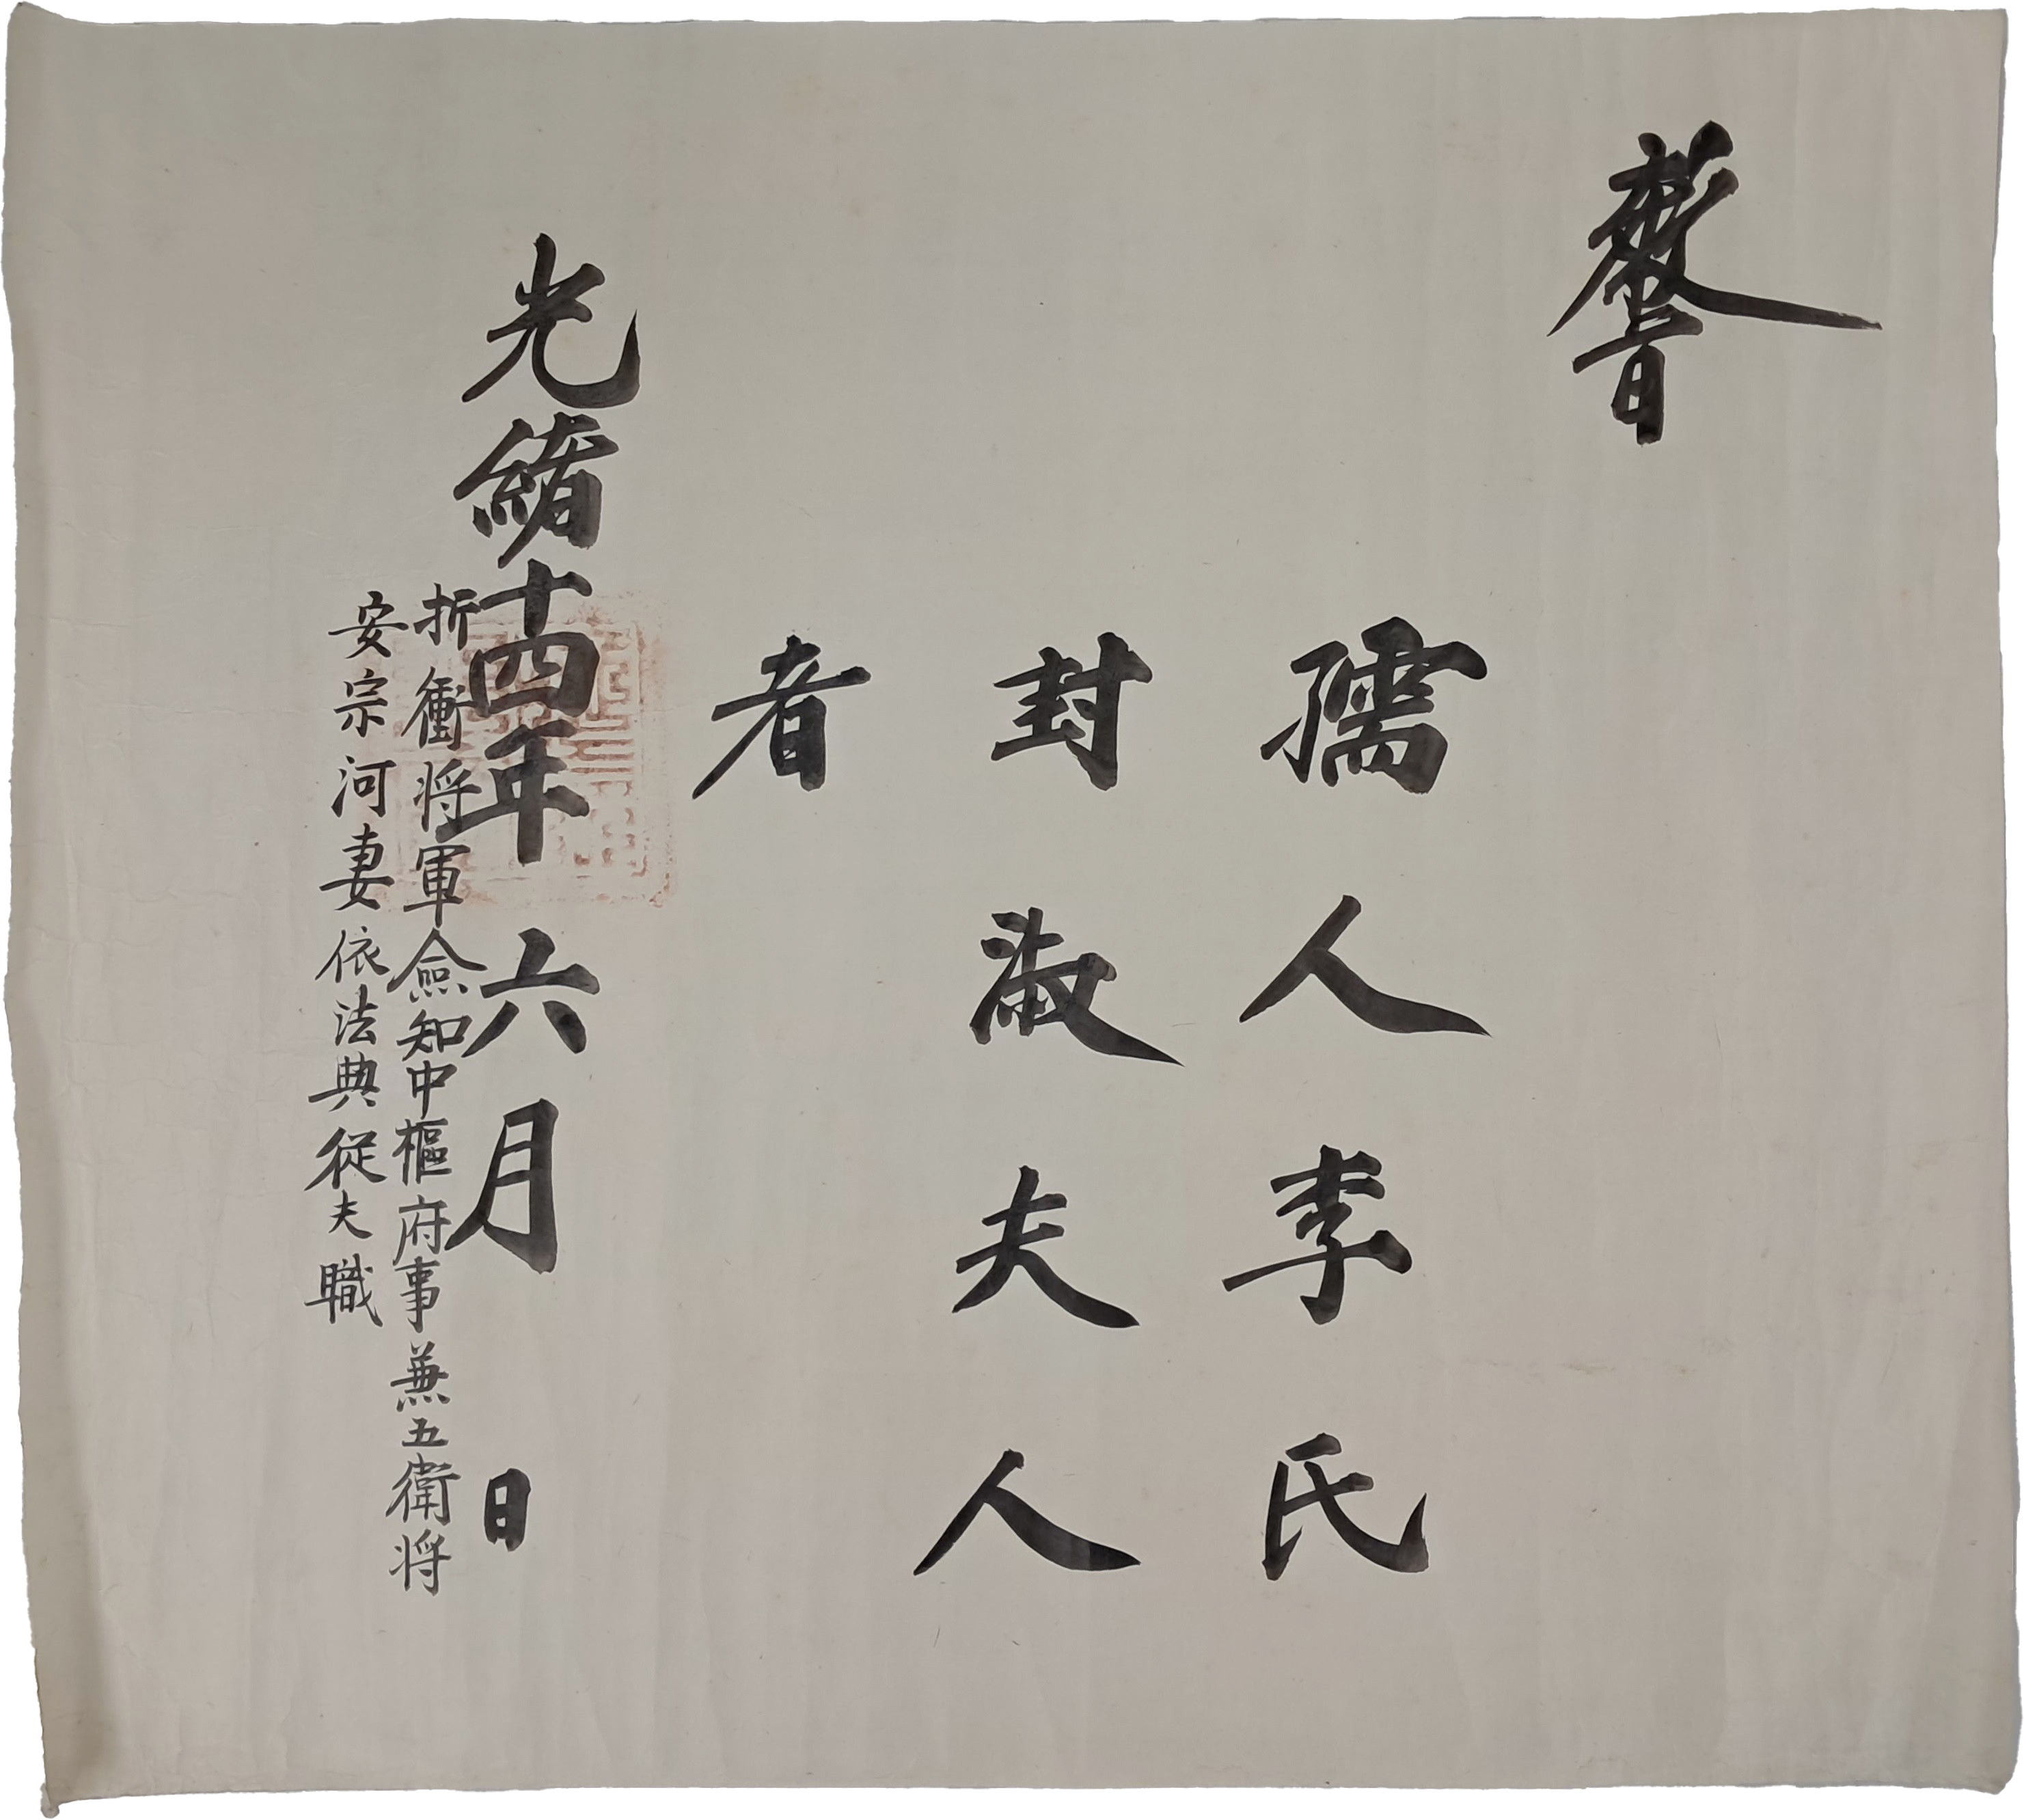 敎旨
孺人李氏
封淑夫人
者
光緖十四年六月日
折衝将軍僉知中樞府事兼五衛将
安宗河妻依法典從夫職